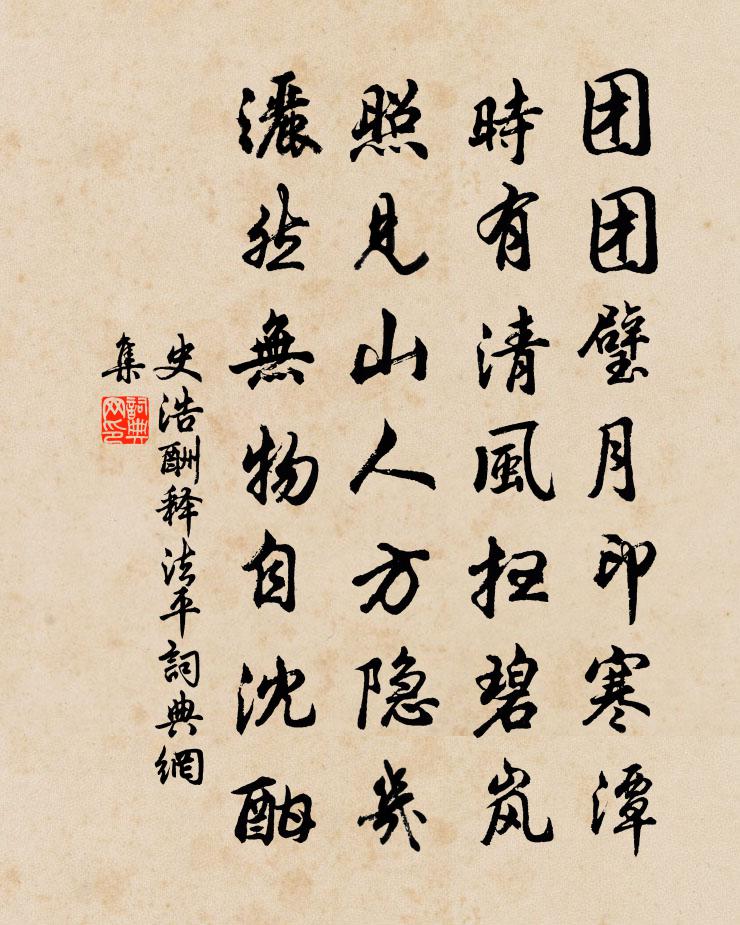 团团璧月印寒潭
時有清風扫碧岚
照見山人方隐幾
灑然無物自沈酣
史浩酬释法平詞典網
集
詞典网印